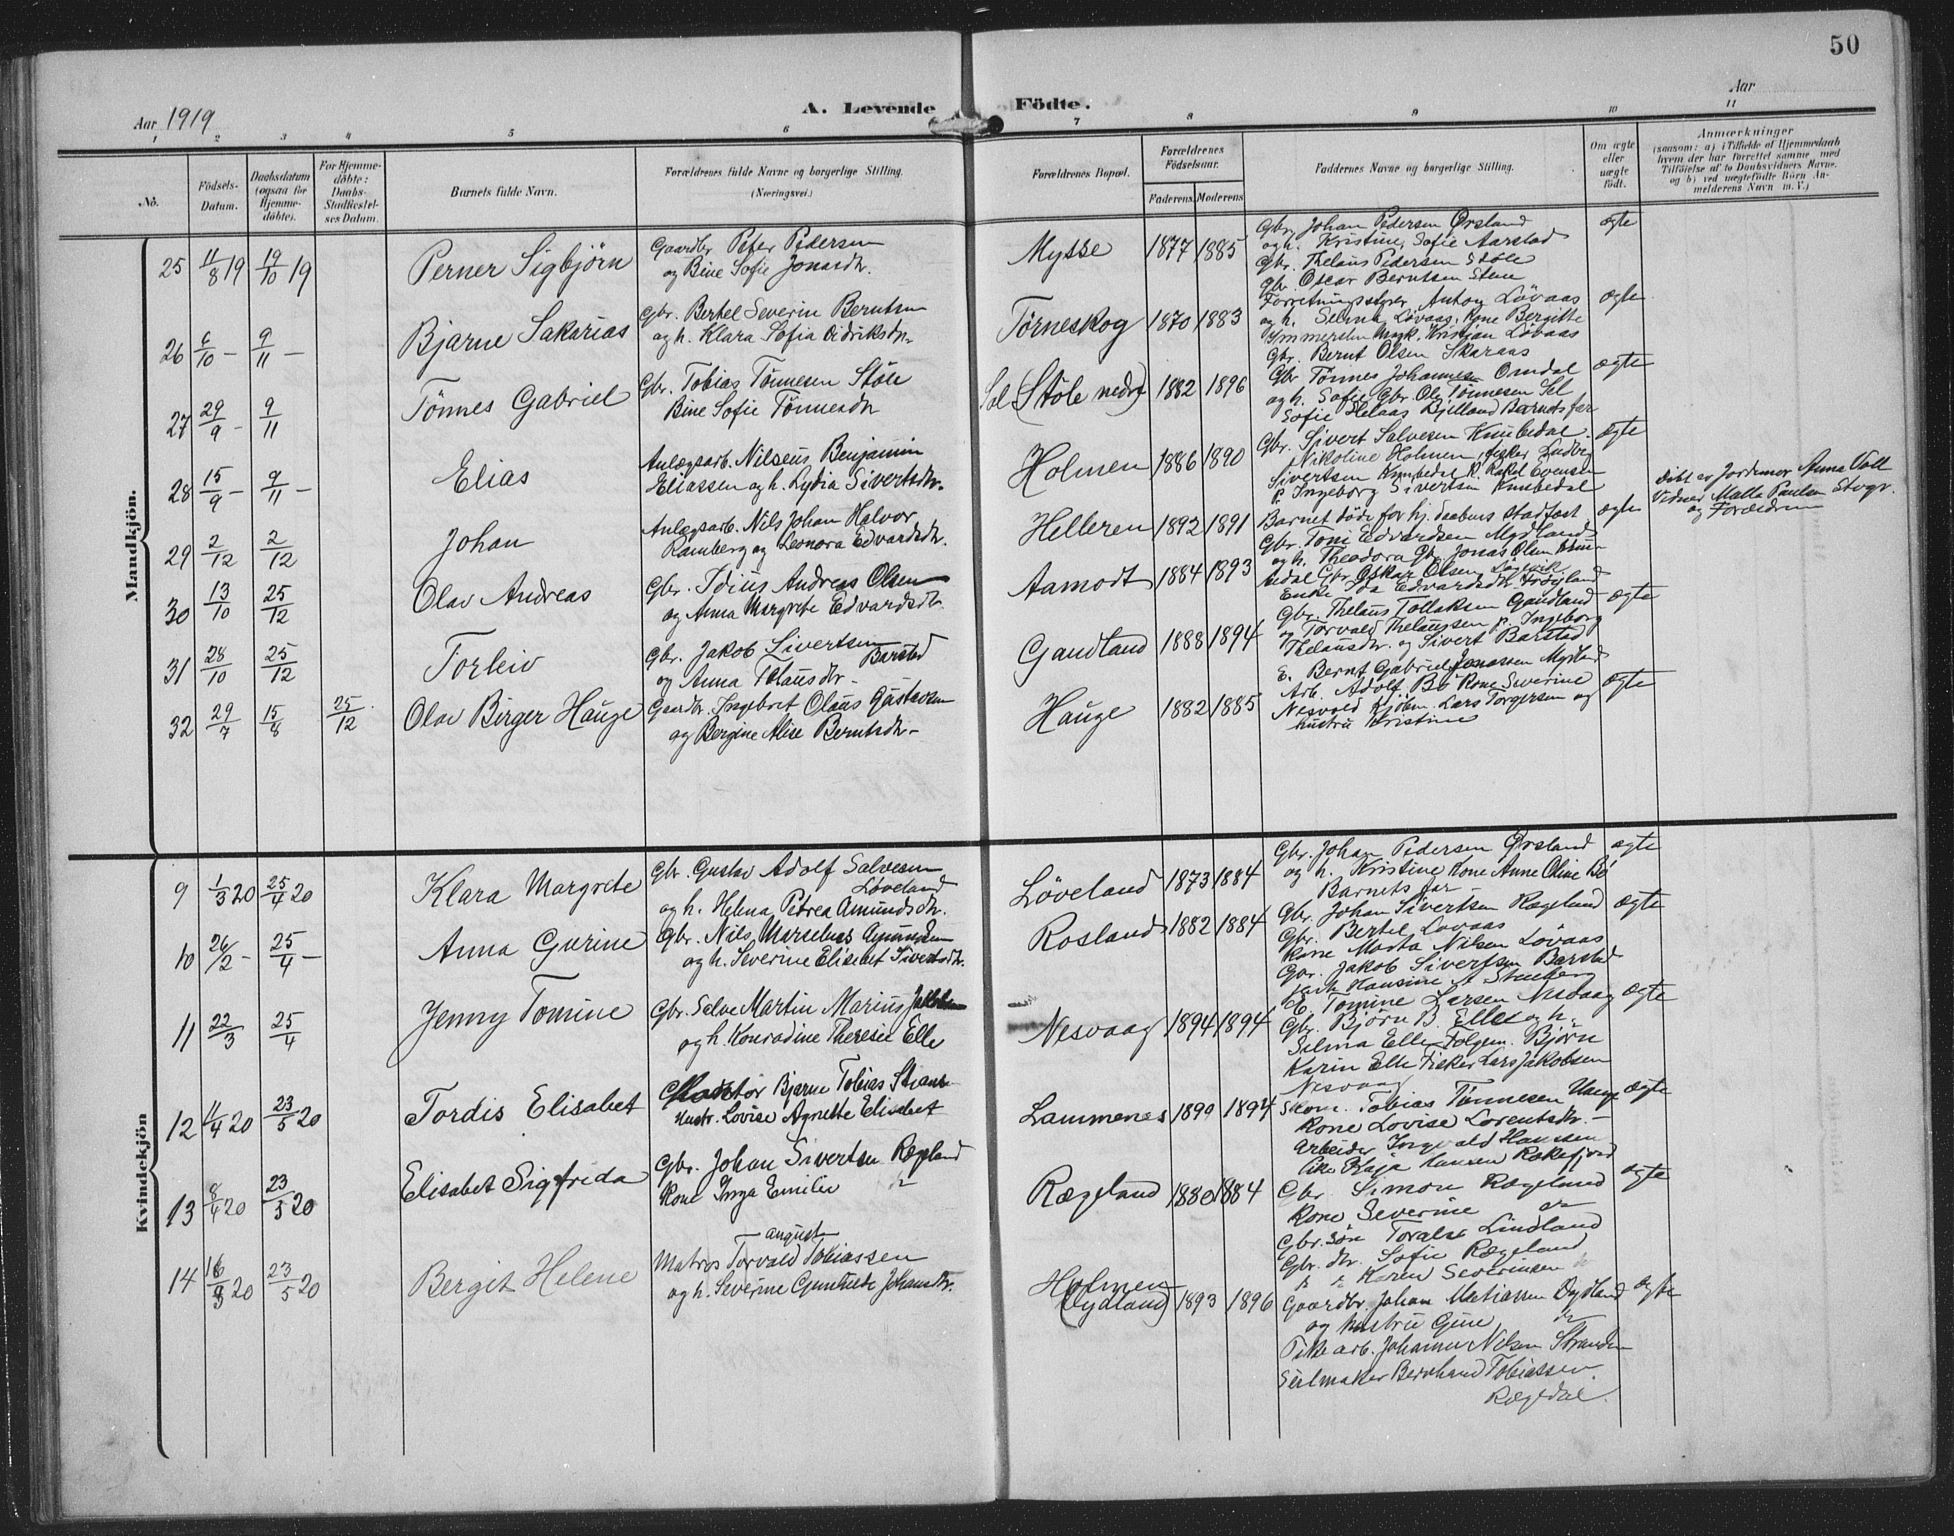 50
Aar 1919
A. Levende Födte.
Aar
1 2 3 4 5 6 7 8 9 10 11
No.
Födsels-Datum.
Daabsdatum (ogsaa for Hjemmedöbte).
For Hjemmedöbte: Daabs-Stadfæstelses Datum.
Barnets fulde Navn.
Forældrenes fulde Navne og borgerlige Stilling. (Næringsvei.)
Forældrenes Bopæl.
Forældrenes Födselsaar.
Faderens Moderens
Faddernes Navne og borgerlige Stilling.
Om ægte eller uægte födt.
Anmærkninger
(saasom: a) i Tilfælde af Hjemmedaab hvem der har forrettet samme med Tilföielse af to Daabsvidners Navne, og b) ved uægtefödte Börn Anmelderens Navn m. V.)
Mandkjön.
25 11/8 19 19/10 19 Perner Sigbjörn
Gaardbr. Peter Pedersen
og Bine Sofie Jonasdtr.
Mysse 1877 1885
Gbr. Johan Pedersen Ørsland
og h. Kristine, Sofie Aarstad
Gbr. Thelaus Pedersen Støle
Gbr. Oscar Berntsen Stene
ægte
26 6/10 – 9/11 – Bjarne Sakarias
Gbr. Bertel Severin Berntsen
og h. Klara Sofia Didriksdtr.
Törneskog 1870 1883
Forretningsstyrer Anton Lövaas
og h. Selma Lövaas, Kone Bergitte
Kristjan Lövaas
Gbr. Bernt Olsen Skaraas
ægte
27 29/9 – 9/11 Tönnes Gabriel
Gbr. Tobias Tönnesen Støle
Bine Sofie Tönnesdtr
Sel (Støle nedre) 1882 1896
Gbr Tönnes Johannesen Omdal
og h. Sofie Gbr. Ole Tönnesen Sel
Sofie Helaas Bjelland Barnets far
ægte
28 15/9 – 9/11 – Elias
Anlægsarb. Nilseus Benjamin
Eliassen og h. Lydia Sivertsdtr.
Holmen 1886 1890
Gbr. Sivert Salvesen Knubedal
Nikoline Holmen, fisker Ludvig
Sivertsen Knubedal K. Rakel Evensen
p. Ingeborg Sivertsen Knubedal
ægte
29 2/12 2/12 Johan
Anlægsarb. Nils Johan Halvor
Ramberg og Leonora Edvardsdtr.
Helleren 1892 1891
Barnet døde før hj. daabens stadfæst
ægte
Döbt av Jordmor Anna Voll
Vidner Malla Paulsen Stogr.
og Forældrene
30 13/10 25/12 Olav Andreas
Gbr. Idius Andreas Olsen
og Anna Margrete Edvardsdtr.
Aamodt 1884 1893
Gbr. Toni Edvardsen Mydland
og h. Theodora Gbr. Jonas Olsen
Gbr. Oskar Olsen Løgevik
Enke Ida Edvardsdtr. Frøyland
31 28/10 25/12 Torleiv
Gbr. Jakob Sivertsen
Barstad
og Anna Telausdtr –
Gandland 1888 1894
Gbr. Thelaus Tollaksen Gandland
og Torvald Thelaussen p. Ingeborg
Thelausdtr. og Sivert Barstad
ægte
32 29/7 15/8 25/12 Olav Birger Hauge
Gaardbr. Ingebret Olaus Gustavsen
og Bergine Alise Berntsdtr –
Hauge 1882 1885
E. Bernt Gabriel Jonassen Mydland
Arb. Adolf Bö Kone Severine
Nesvold Kjöbm. Lars Torgersen og
hustru Kristine
ægte
Kvindekjön
9 1/3 20 25/4 20 Klara Margrete
Gbr. Gustav Adolf Salvesen
Løveland
og h. Helena Petrea Amundsdtr.
Löveland 1873 1884
Gbr. Johan Pedersen Ørsland
og h. Kristine Kone Anne Oline Bö
Barnets far
ægte
10 26/2 – 25/4 – Anna Gurine
Gbr. Nils Marselius Amundsen
og h. Severine Elisebet Sivertsdtr.
Rosland 1882 1884
Gbr. Johan Sivertsen Rægeland
Gbr. Bertel Lövaas
Kone Marta Nilsen Lövaas
Gbr. Jakob Sivertsen Barstad
ægte
11 22/3 25/4 Jenny Tomine
Gbr. Selve Martin Marius Jakobsen
og h. Konradine Theresie Elle
Nesvaag 1894 1894
E. Tomine Larsen Nesvaag
Gbr. Bjørn B. Elle og h.
Selma Elle Bjørn
Karin Elle Fisker Lars Jakobsen
Nesvaag
ægte
12 11/4 20 23/5 20 Tordis Elisabet
Bjarne Tobias
Hustr. Lovise Agnette Elisebet
Lammenes 1899 1894
Skom. Tobias Tönnesen
Kone Lovise Lorentsdtr. –
Arbeider Ingvald Hansen
Pike Kaja Hansen Rækefjord
ægte
13 8/4 20 23/5 20 Elisabet Sigfrida
Gbr. Johan Sivertsen Rægeland
Kone Inga Emilie "
Rægeland 1880 1884
Gbr. Simon Rægeland
Kone Severine do
Gbr. søn Toralf Lindland
Gbr. dtr. Sofie Rægeland
" " Karen Severinsen
ægte
14 16/3 20 23/5 20 Bergit Helene
august
Matros Torvald Tobiassen
og h. Severine Guntilde Johansdtr.
Holmen
(Dydland) 1893 1896
Gaardbr. Johan Matiassen Dydland
og hustru Gine do
Pike arb. Johanne Nilsen Stranden
Seilmaker Bernhard Tobiassen
Rægedal.
ægte